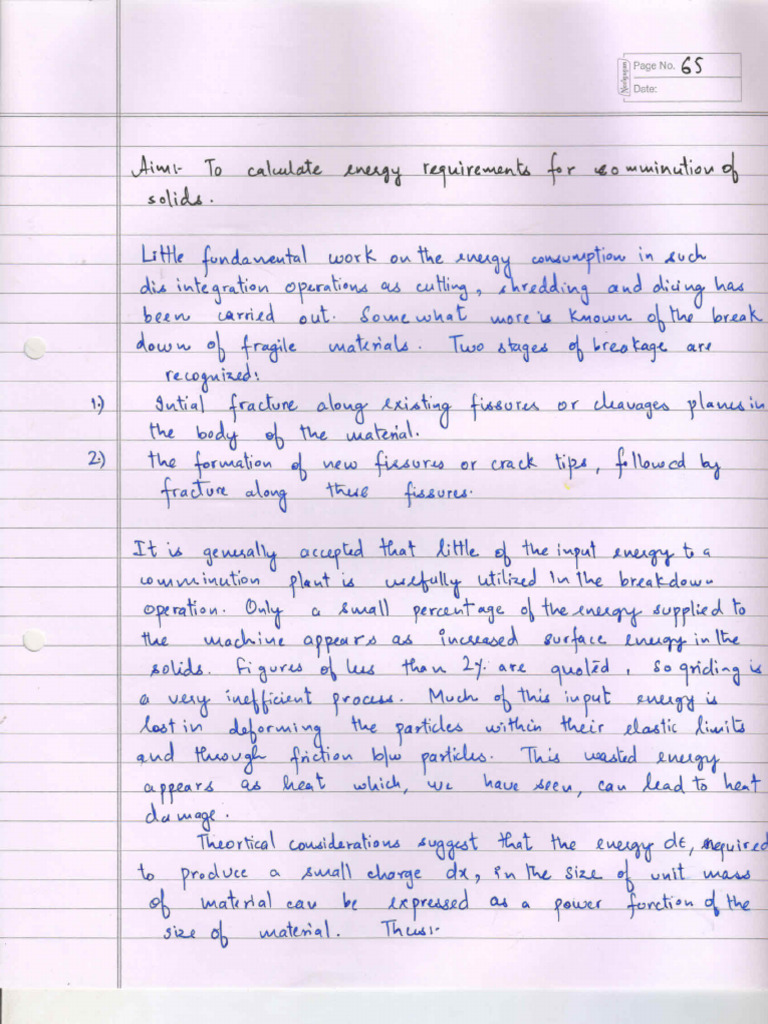 Neelgagan
Page No. 65
Date:
Aim:- To calculate energy requirements for comminution of
solids.
Little fundamental work on the energy consumption in such
dis integration operations as cutting, shredding and dicing has
been carried out. Some what more is known of the break
down of fragile materials. Two stages of breakage are
recognized:
1:) Intial fracture along existing fissures or cleavages planes in
the body of the material.
2:) the formation of new fissures or crack tips, followed by
fracture along these fissures.
It is generally accepted that little of the input energy to a
comminution plant is usefully utilized in the breakdown
operation. Only a small percentage of the energy supplied to
the machine appears as increased surface energy in the
solids. Figures of less than 2% are quoted, so griding is
a very inefficient process. Much of this input energy is
lost in deforming the particles within their elastic limits
and through friction b/w particles. This wasted energy
appears as heat which, we have seen, can lead to heat
damage.
Theortical considerations suggest that the energy dE, required
to produce a small charge dx, in the size of unit mass
of material can be expressed as a power fonction of the
size of material. Thus:-